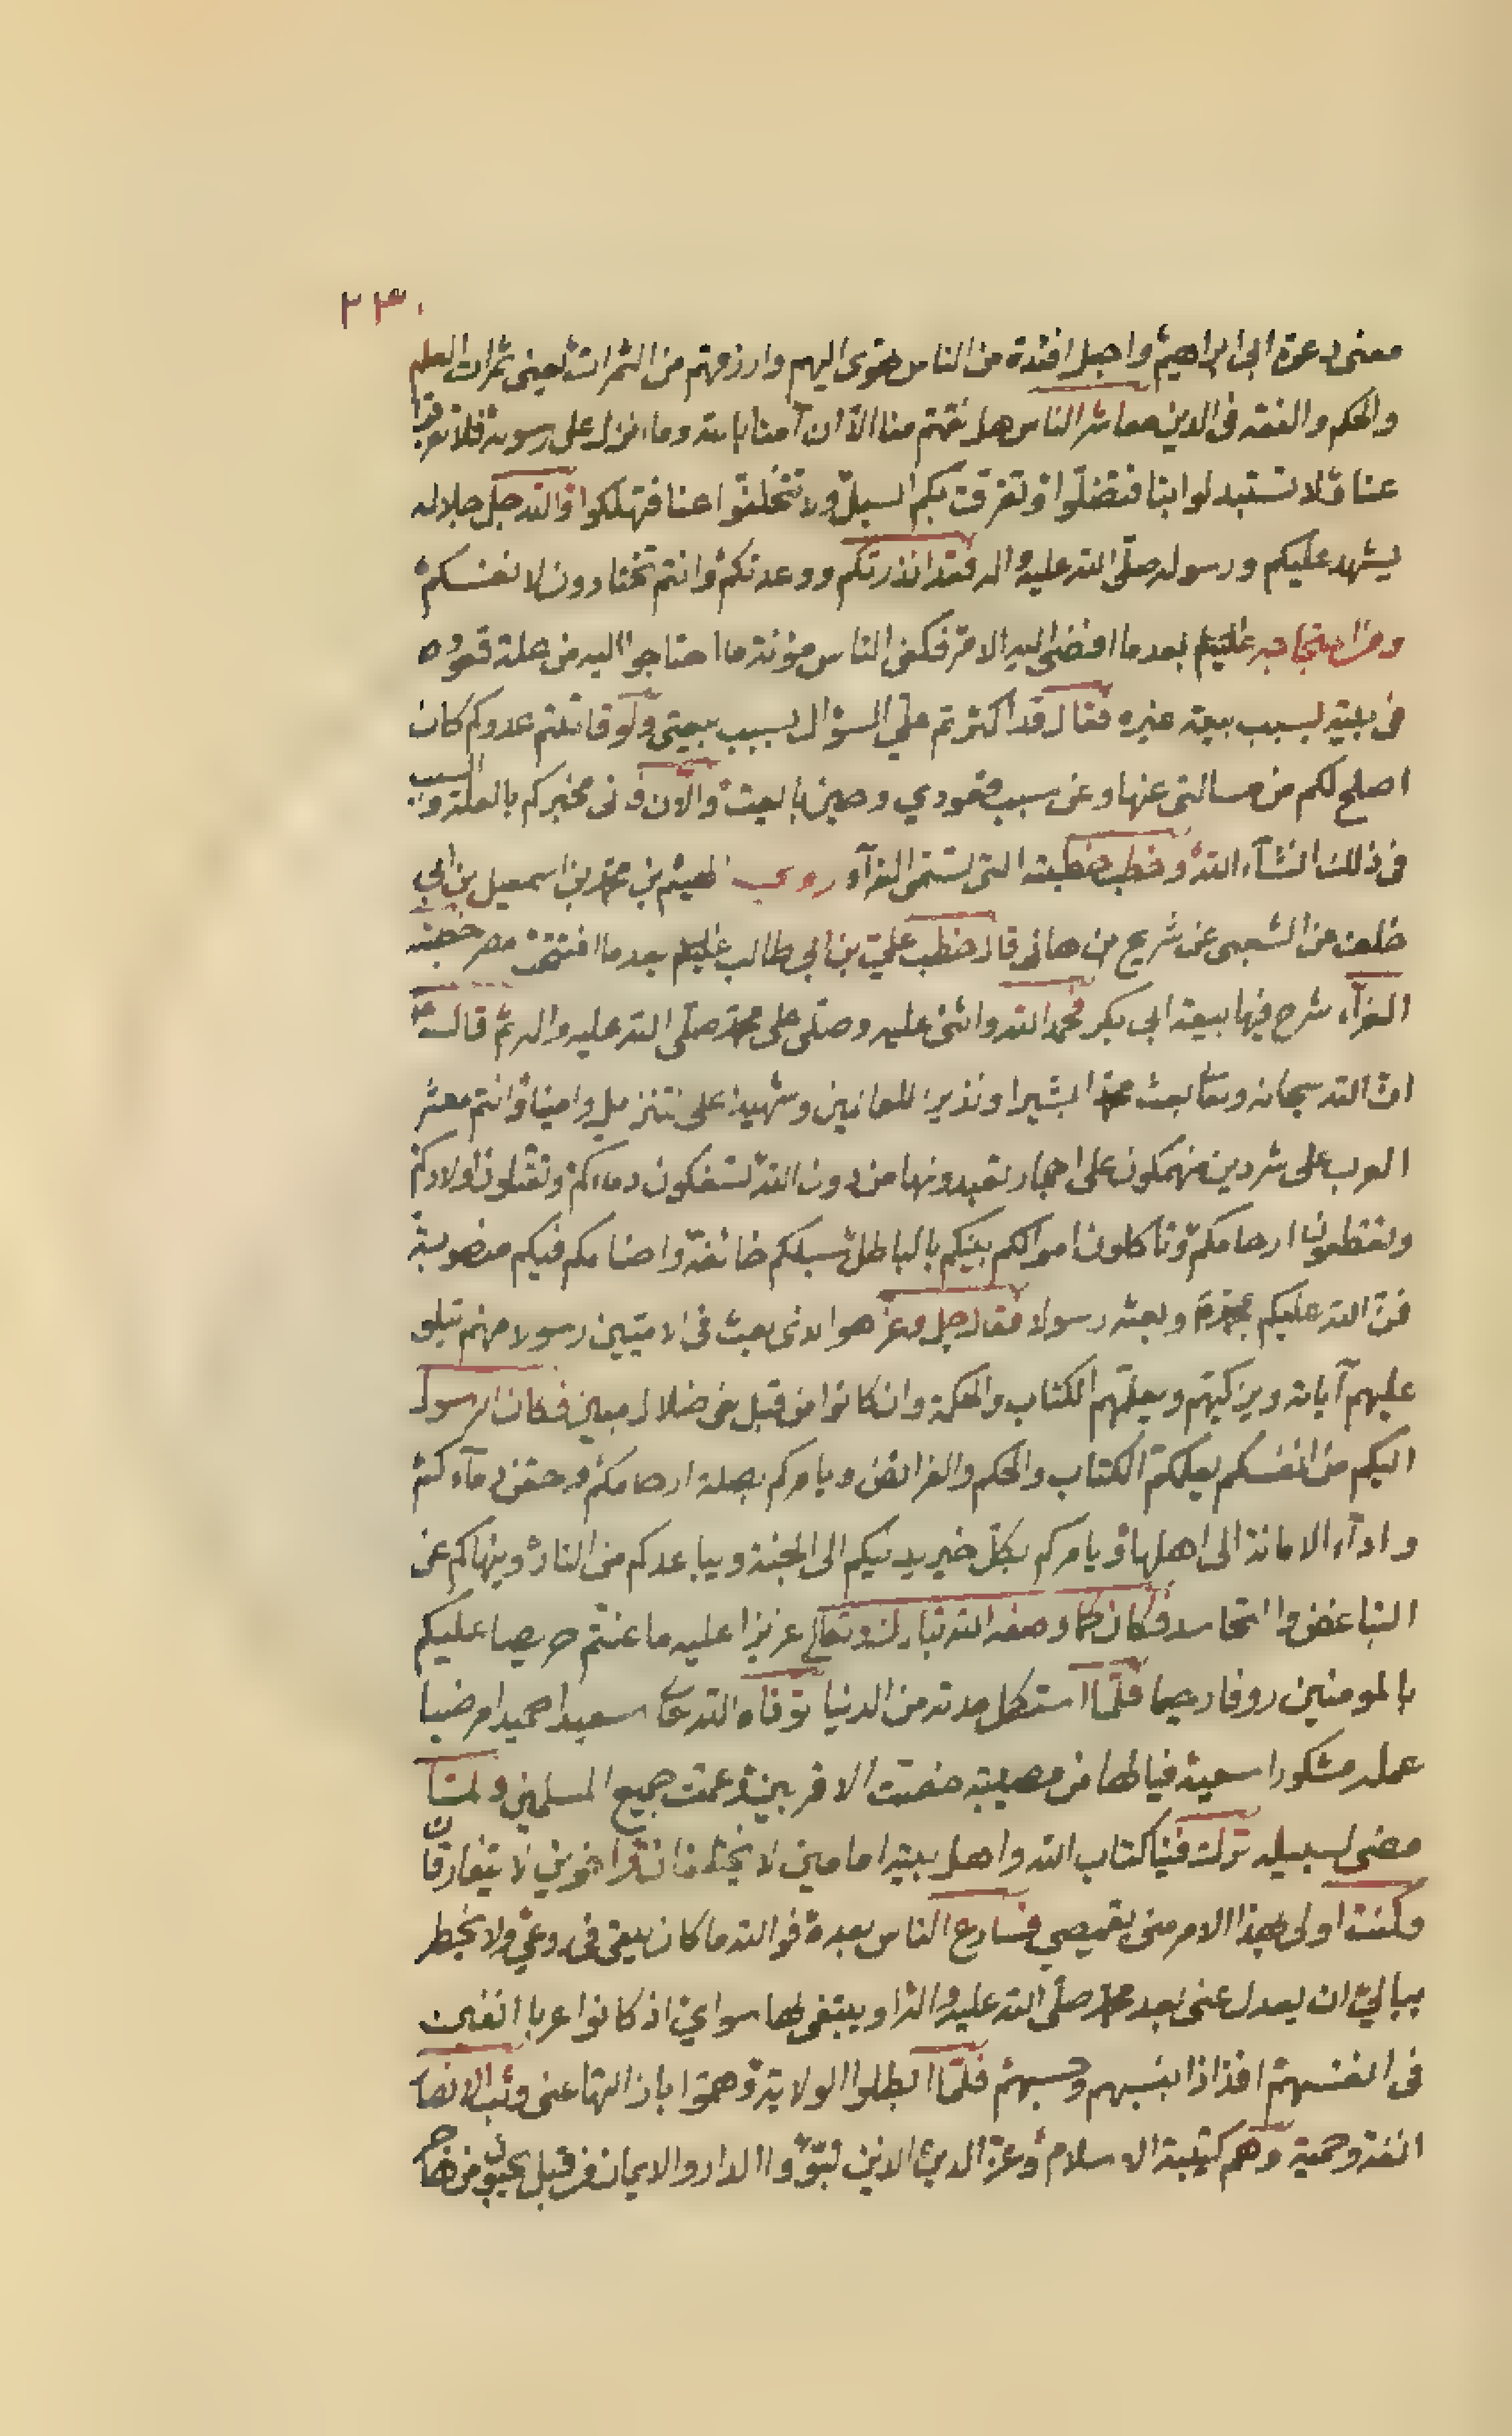 ٢٣٠
معنى دعوة ابى ابراهيم واجعل افئدة من الناس تهوى اليهم وارزقهم من الثمرات يعنى ثمرات العلم
والحكم والفقه فى الدين معاشر الناس هل نقمتم منا الا ان آمنا بالله وما انزل على رسوله فلا تفرقوا
عنا ولا تستبدلوا بنا فتضلوا وتفرقت بكم السبل ولا تتخلفوا عنا فتهلكوا والله جل جلاله
يشهد عليكم ورسوله صلى الله عليه واله فقد انذرتكم ووعدتكم وانتم تختارون لانفسكم
ومن احتجاجه عليهلم بعد ما افضى اليه الامر فكفى الناس مؤنة ما احتاجوا اليه من علة قعوده
فى بيته بسبب بيعة غيره فقال قد اكثرتم علي السؤال بسبب بيعتى ولو قاتلتم عدوكم كان
اصلح لكم من مسالتى عنها وعن سبب قعودي وحين بايعت والآن فانى مخبركم بالعلة والسبب
فى ذلك انشآء الله وخطب خطبته التى تسمى الغرآء روى الهيثم بن محمد بن اسمعيل بن ابي
خلف عن الشعبى عن شريح بن هانى قال خطب علي بن ابي طالب عليهلم بعد ما افتتحت مصر خطبته
الغرآء شرح فيها بيعة ابى بكر فحمد الله واثنى عليه وصلى على محمد صلى الله عليه واله ثم قال
ان الله سبحانه وتعا بعث محمدا بشيرا ونذيرا للعالمين وشهيدا على تنزيل وامينا وانتم معشر
العرب على شر دين منهمكون على احجار تعبدونها من دون الله تسفكون دماءكم وتقتلون اولادكم
وتقطعون ارحامكم وتاكلون اموالكم بينكم بالباطل سبلكم خائفة واصنامكم فيكم منصوبة
فمن الله عليكم بمحمد وبعثه رسولا فقال جل وعز هو الذى بعث فى الاميين رسولا منهم يتلو
عليهم آياته ويزكيهم ويعلمهم الكتاب والحكمة وان كانوا من قبل لفى ضلال مبين فكان الرسول
اليكم من انفسكم يعلمكم الكتاب والحكم والفرائض ويامركم بصلة ارحامكم وحقن دمآءكم
وادآء الامانة الى اهلها ويامركم بكل خير يدنيكم الى الجنة ويباعدكم من النار وينهاكم عن
التباغض والتحاسد فكان كما وصفه الله تبارك وتعالى عزيزا عليه ما عنتم حريصا عليكم
بالمومنين روفا رحيما فلما استكمل مدته من الدنيا توفاه الله تعا سعيدا حميدا مرضيا
عمله مشكورا سعيه فيا لها من مصيبة خصت الاقربين وعمت جميع المسلمين ولما
مضى لسبيله ترك فينا كتاب الله واهل بيته امامين لا يختلفان واخوين لا يتفارقان
وكنت اولى بهذا الامر منى بقميصي فسارع الناس بعده فوالله ما كان يبقى فى روعي ولا يخطر
ببالي ان يعدل عنى بعد محمد صلى الله عليه واله او يبتغى لها سواي اذ كانوا عربا انفين
فى انفسهم افذاذا بنسبهم وحسبهم فلما ابطلوا الولاية وهموا بازالتها عنى وثب الانصار
انفة وحمية وهم كتيبة الاسلام وعزة الدين الذين تبوؤا الدار والايمان من قبل يحبون من هاجر